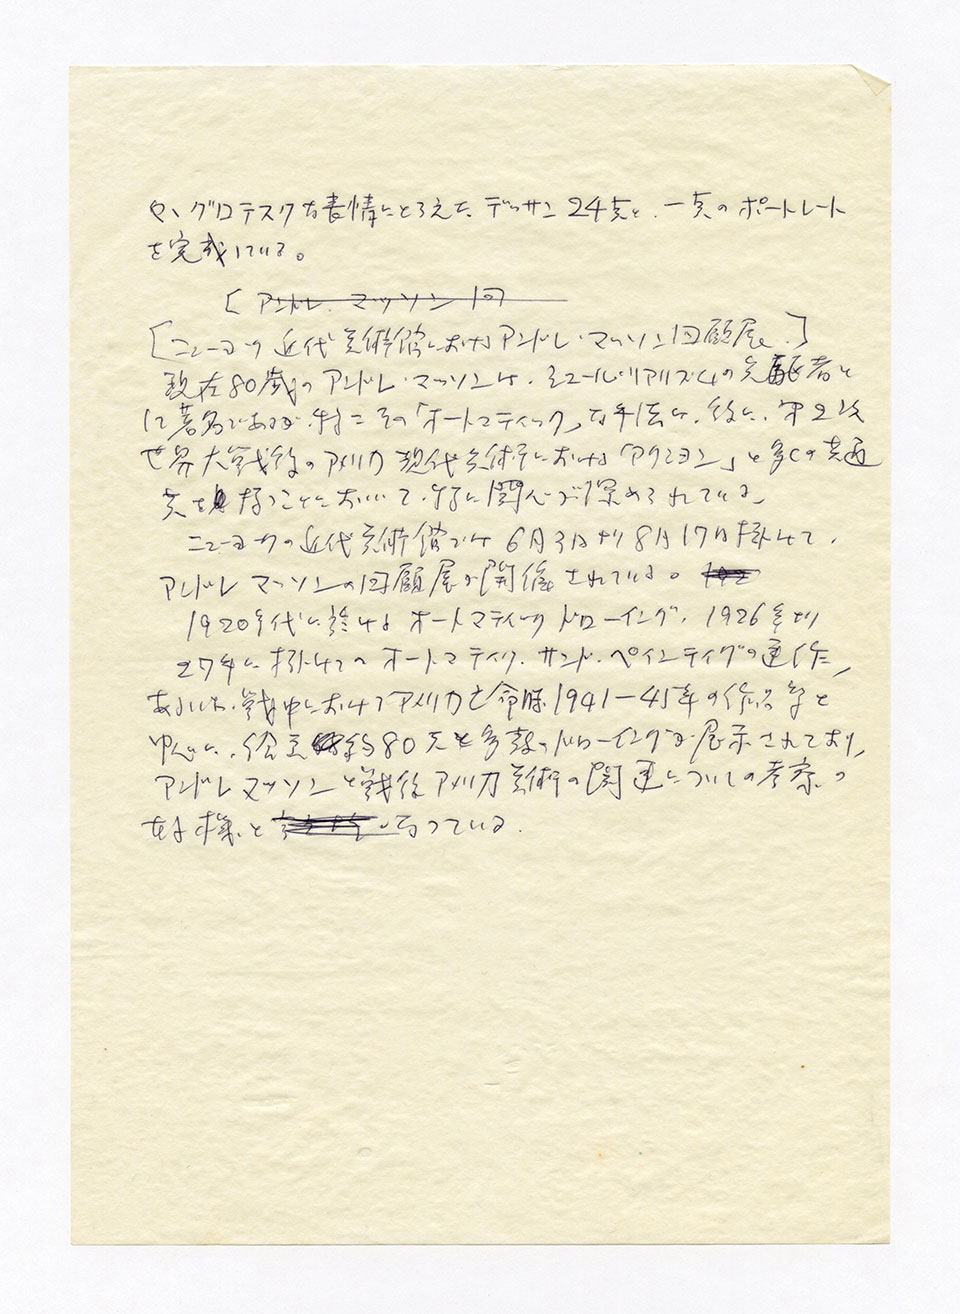 や、グロテスクな表情にとらえた デッサン 24点と、一点のポートレート
を完成している。
[アンドレ・マッソン 回
[ニューヨーク近代美術館におけるアンドレ・マッソン回顧展。]
現在80歳のアンドレ・マッソンは、シュールレアリズムの先駆者と
して著名であるが、特にその「オートマティック」な手法は、後に、第2次
世界大戦後のアメリカ現代美術等における「アクション」と多くの共通
点を持つことにおいて、特に関心が深められている。
ニューヨークの近代美術館では 6月3日より8月17日に掛けて、
アンドレ マッソンの回顧展が開催されている。
1920年代に於けるオートマティック ドローイング、1926年より
27年に掛けてのオートマティク・サンド・ペインティグの連作、
あるいは、戦中におけるアメリカ亡命時 1941―45年の作品等を
中心に、約80点と多数のドローイングが展示されており、
アンドレ マッソンと戦後アメリカ美術の関連についての考察の
好機と なっている。